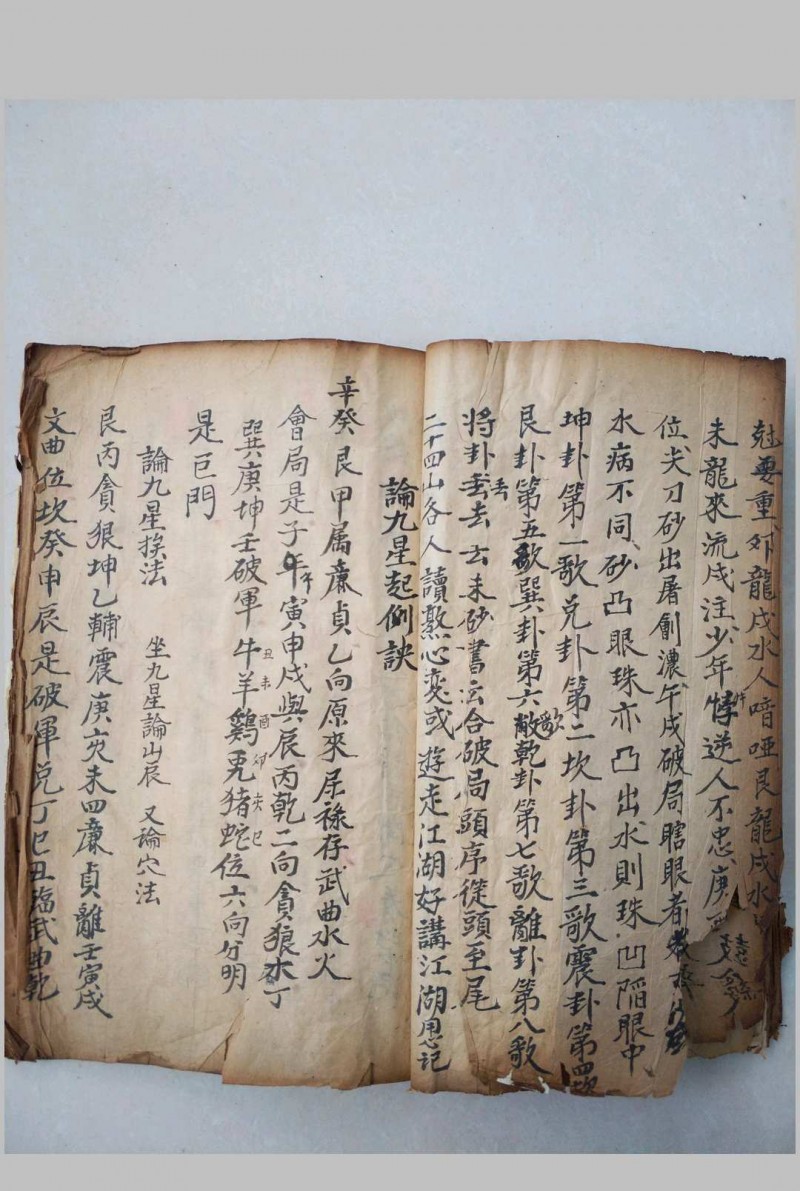 尅要重外龍戌水人喑啞艮龍戌水
未龍來流戌注少年悖逆人不忠庚
位尖刀砂出屠創濃午戌破局瞎眼者
水病不同砂凸眼珠亦凸出水則珠凹陷眼中
坤卦第一歌兌卦第二坎卦第三歌震卦第四
艮卦第五歌巽卦第六歌乾卦第七歌離卦第八歌
將卦丟去去未砂書云合破局頭序從頭至尾
二十四山各人讀熟心変或遊走江湖好講江湖思记
論九星起例訣
辛癸艮甲属亷貞乙向原來屬禄存武曲水火
會局是子午寅申戌與辰丙乾二向貪狼木丁
巽庚坤壬破軍牛羊鷄兎猪蛇位六向分明
丑未酉卯亥巳
是巨門
論九星挨法 坐九星論山辰 又論穴法
艮丙貪狠坤乙輔震庚亥未四亷貞離壬寅戌
文曲位坎癸申辰是破軍兌丁巳丑臨武曲乾